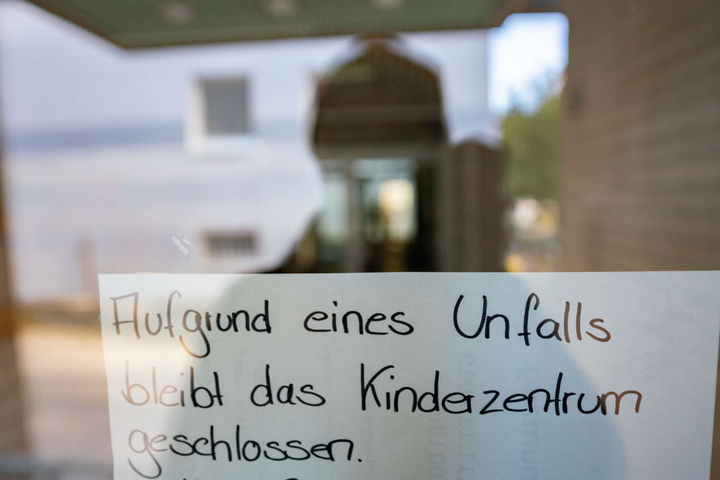 Aufgrund eines Unfalls
bleibt das Kinderzentrum
geschlossen.